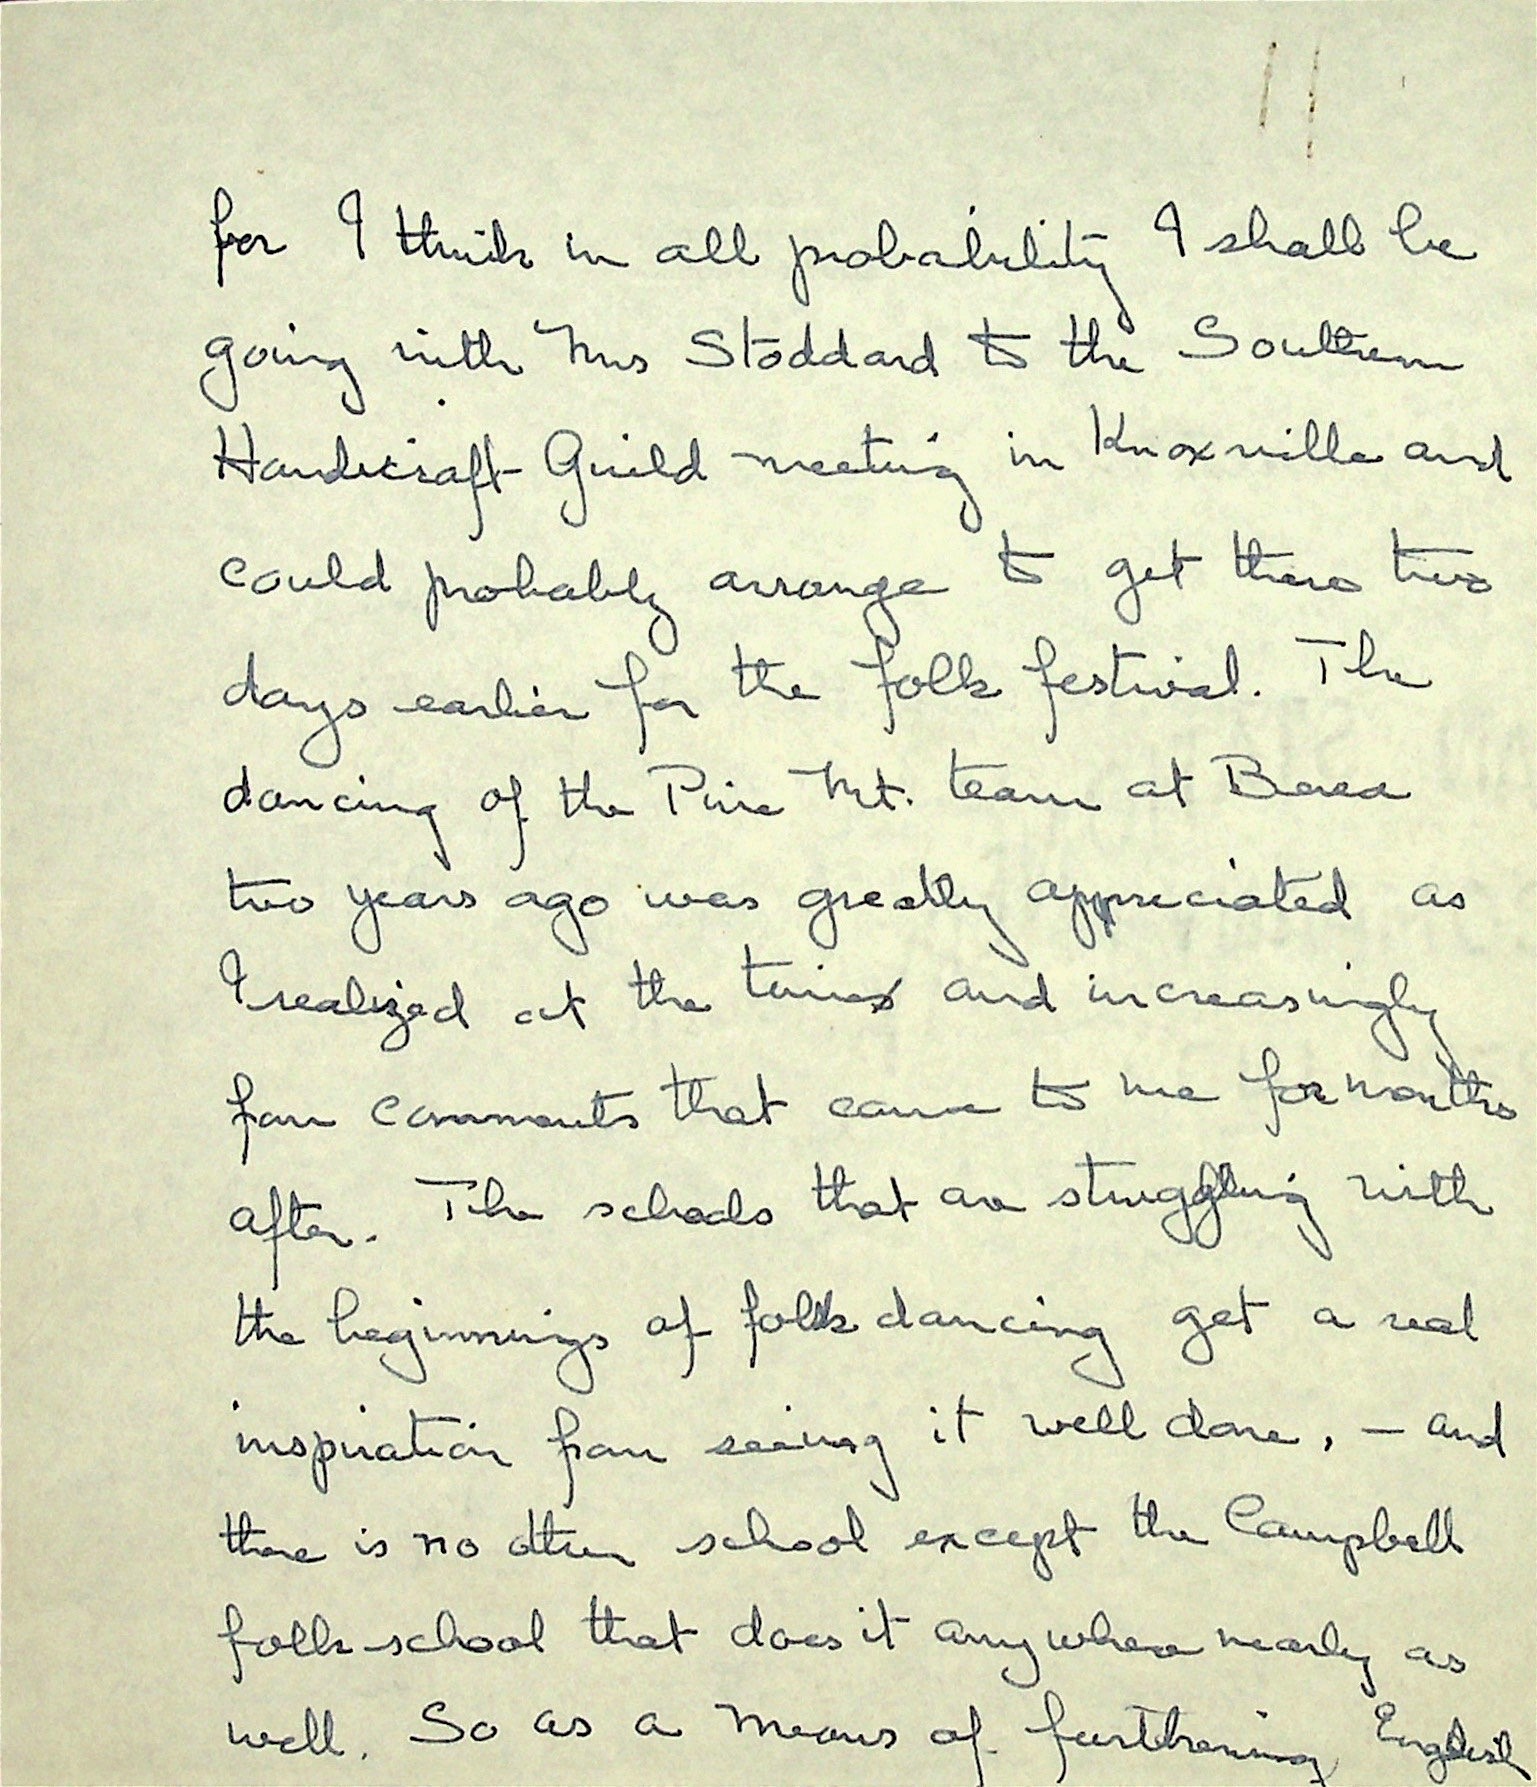 for I think in all probability I shall be
going with Mrs Stoddard to the Southern
Handicraft Guild meeting in Knoxville and
could probably arrange to get there two
days earlier for the folk festival. The
dancing of the Pine Mt. team at Berea
two years ago was greatly appreciated as
I realized at the time and increasingly
from comments that came to me for months
after. The schools that are struggling with
the beginnings of folk dancing get a real
inspiration from seeing it well done, – and
there is no other school except the Campbell
folk-school that does it anywhere nearly as
well. So as a means of furthering English